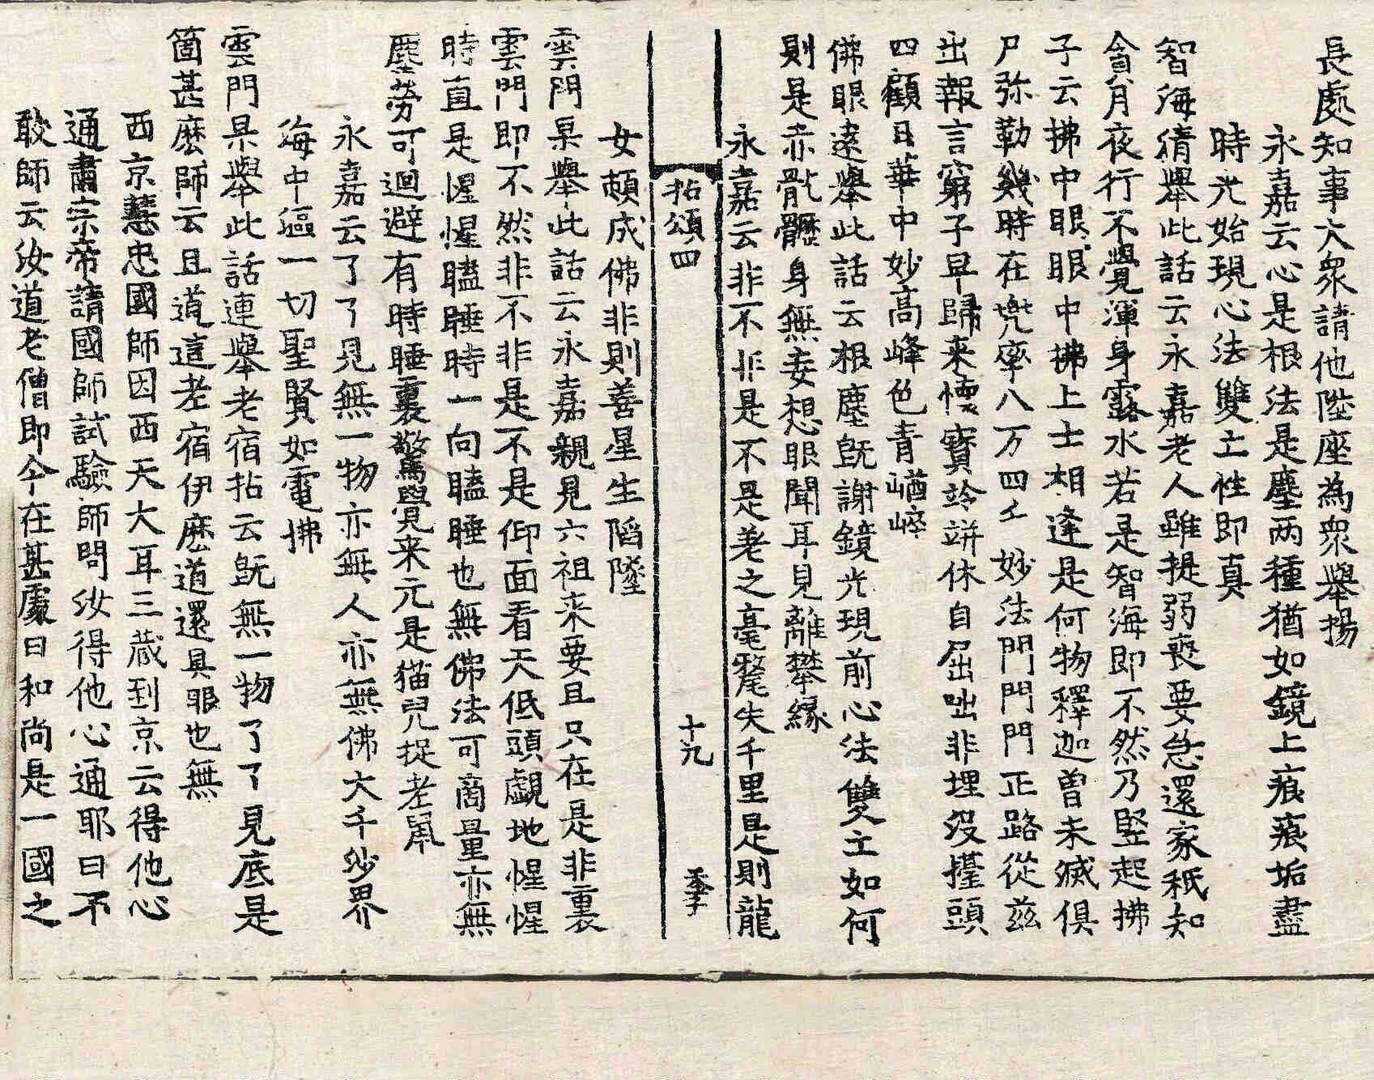 長處知事大衆請他陞座為衆舉揚
永嘉云心是根法是塵两種猶如鏡上痕痕垢盡
時光始現心法雙亡性即真
智海清舉此話云永嘉老人雖提弱喪要急還家秖知
貪月夜行不覺渾身露水若是智海即不然乃竪起拂
子云拂中眼眼中拂上士相逢是何物釋迦曽未滅俱
尸弥勒幾時在兠率八万四千妙法門門門正路從兹
出報言窮子早歸来懷寶竛竮休自屈咄非埋没擡頭
四顧日華中妙高峰色青崷崒
佛眼遠舉此話云根塵旣謝鏡光現前心法雙亡如何
則是赤骩䯝身無妄想眼聞耳見離攀縁
永嘉云非不非是不是差之毫氂失千里是則龍
拈頌四
十九
季
女頓成佛非則善星生陷墜
雲門杲舉此話云永嘉親見六祖来要且只在是非裏
雲門即不然非不非是不是仰面看天低頭覷地惺惺
時直是惺惺瞌睡時一向瞌睡也無佛法可商量亦無
塵勞可迴避有時睡裏驚覺来元是猫兒捉老鼠
永嘉云了了見無一物亦無人亦無佛大千沙界
海中漚一切聖賢如電拂
雲門杲舉此話連舉老宿拈云旣無一物了了見底是
箇甚麽師云且道這老宿伊麽道還具眼也無
西京慧忠國師因西天大耳三藏到京云得他心
通肅宗帝請國師試驗師問汝得他心通耶曰不
敢師云汝道老僧即今在甚處曰和尚是一國之